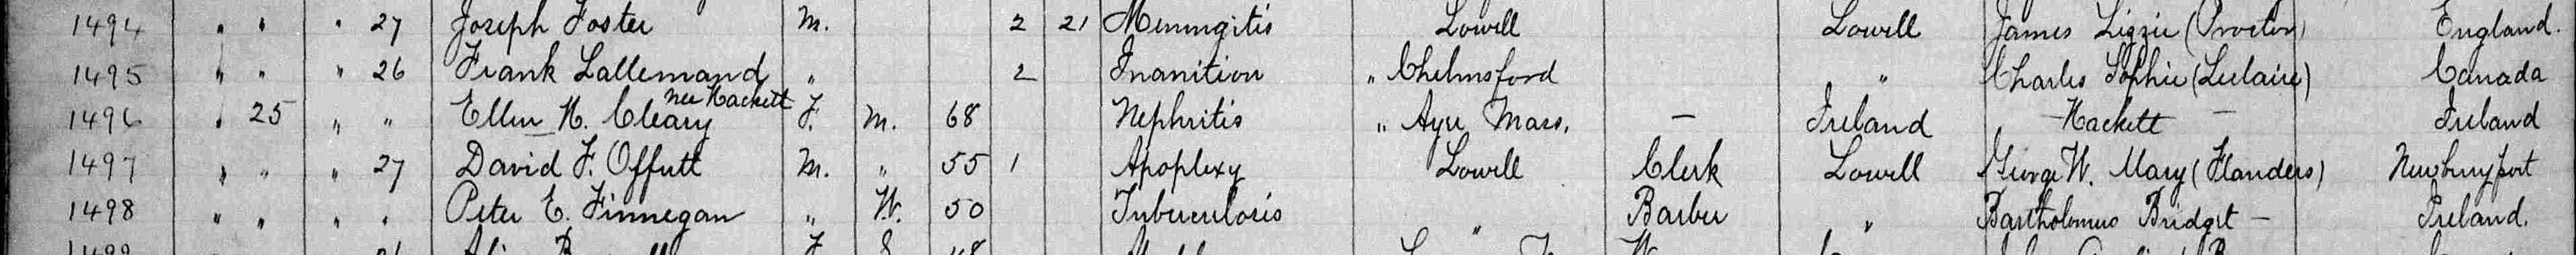 1494 " " " 27 Joseph Foster M. 2 21 Meningitis Lowell Lowell James Lizzie (Proctor) England.
1495 " " " 26 Frank Lallemand " 2 Inanition " Chelmsford " Charles Sophie (Leclaire) Canada
nee Hackett
1496 " 25 " " Ellen H. Cleary F. M. 68 Nephritis " Ayer Mass. — Ireland — Hackett — Ireland
1497 " " " 27 David F. Offutt M. " 55 1 Apoplexy Lowell Clerk Lowell George W. Mary (Flanders) Newburyport
1498 " " " " Peter E. Finnegan " W. 50 Tuberculosis " Barber " Bartholomew Bridget — Ireland.